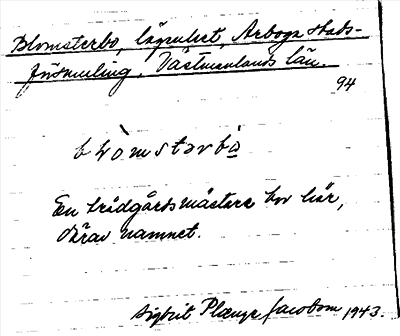 Blomsterbo, lägenhet, Arboga stads-
församling, Västmanlands län.
94
blòmstərbò
En trädgårdsmästare bor här,
därav namnet.
Sigbrit Plænge Jacobson 1943.